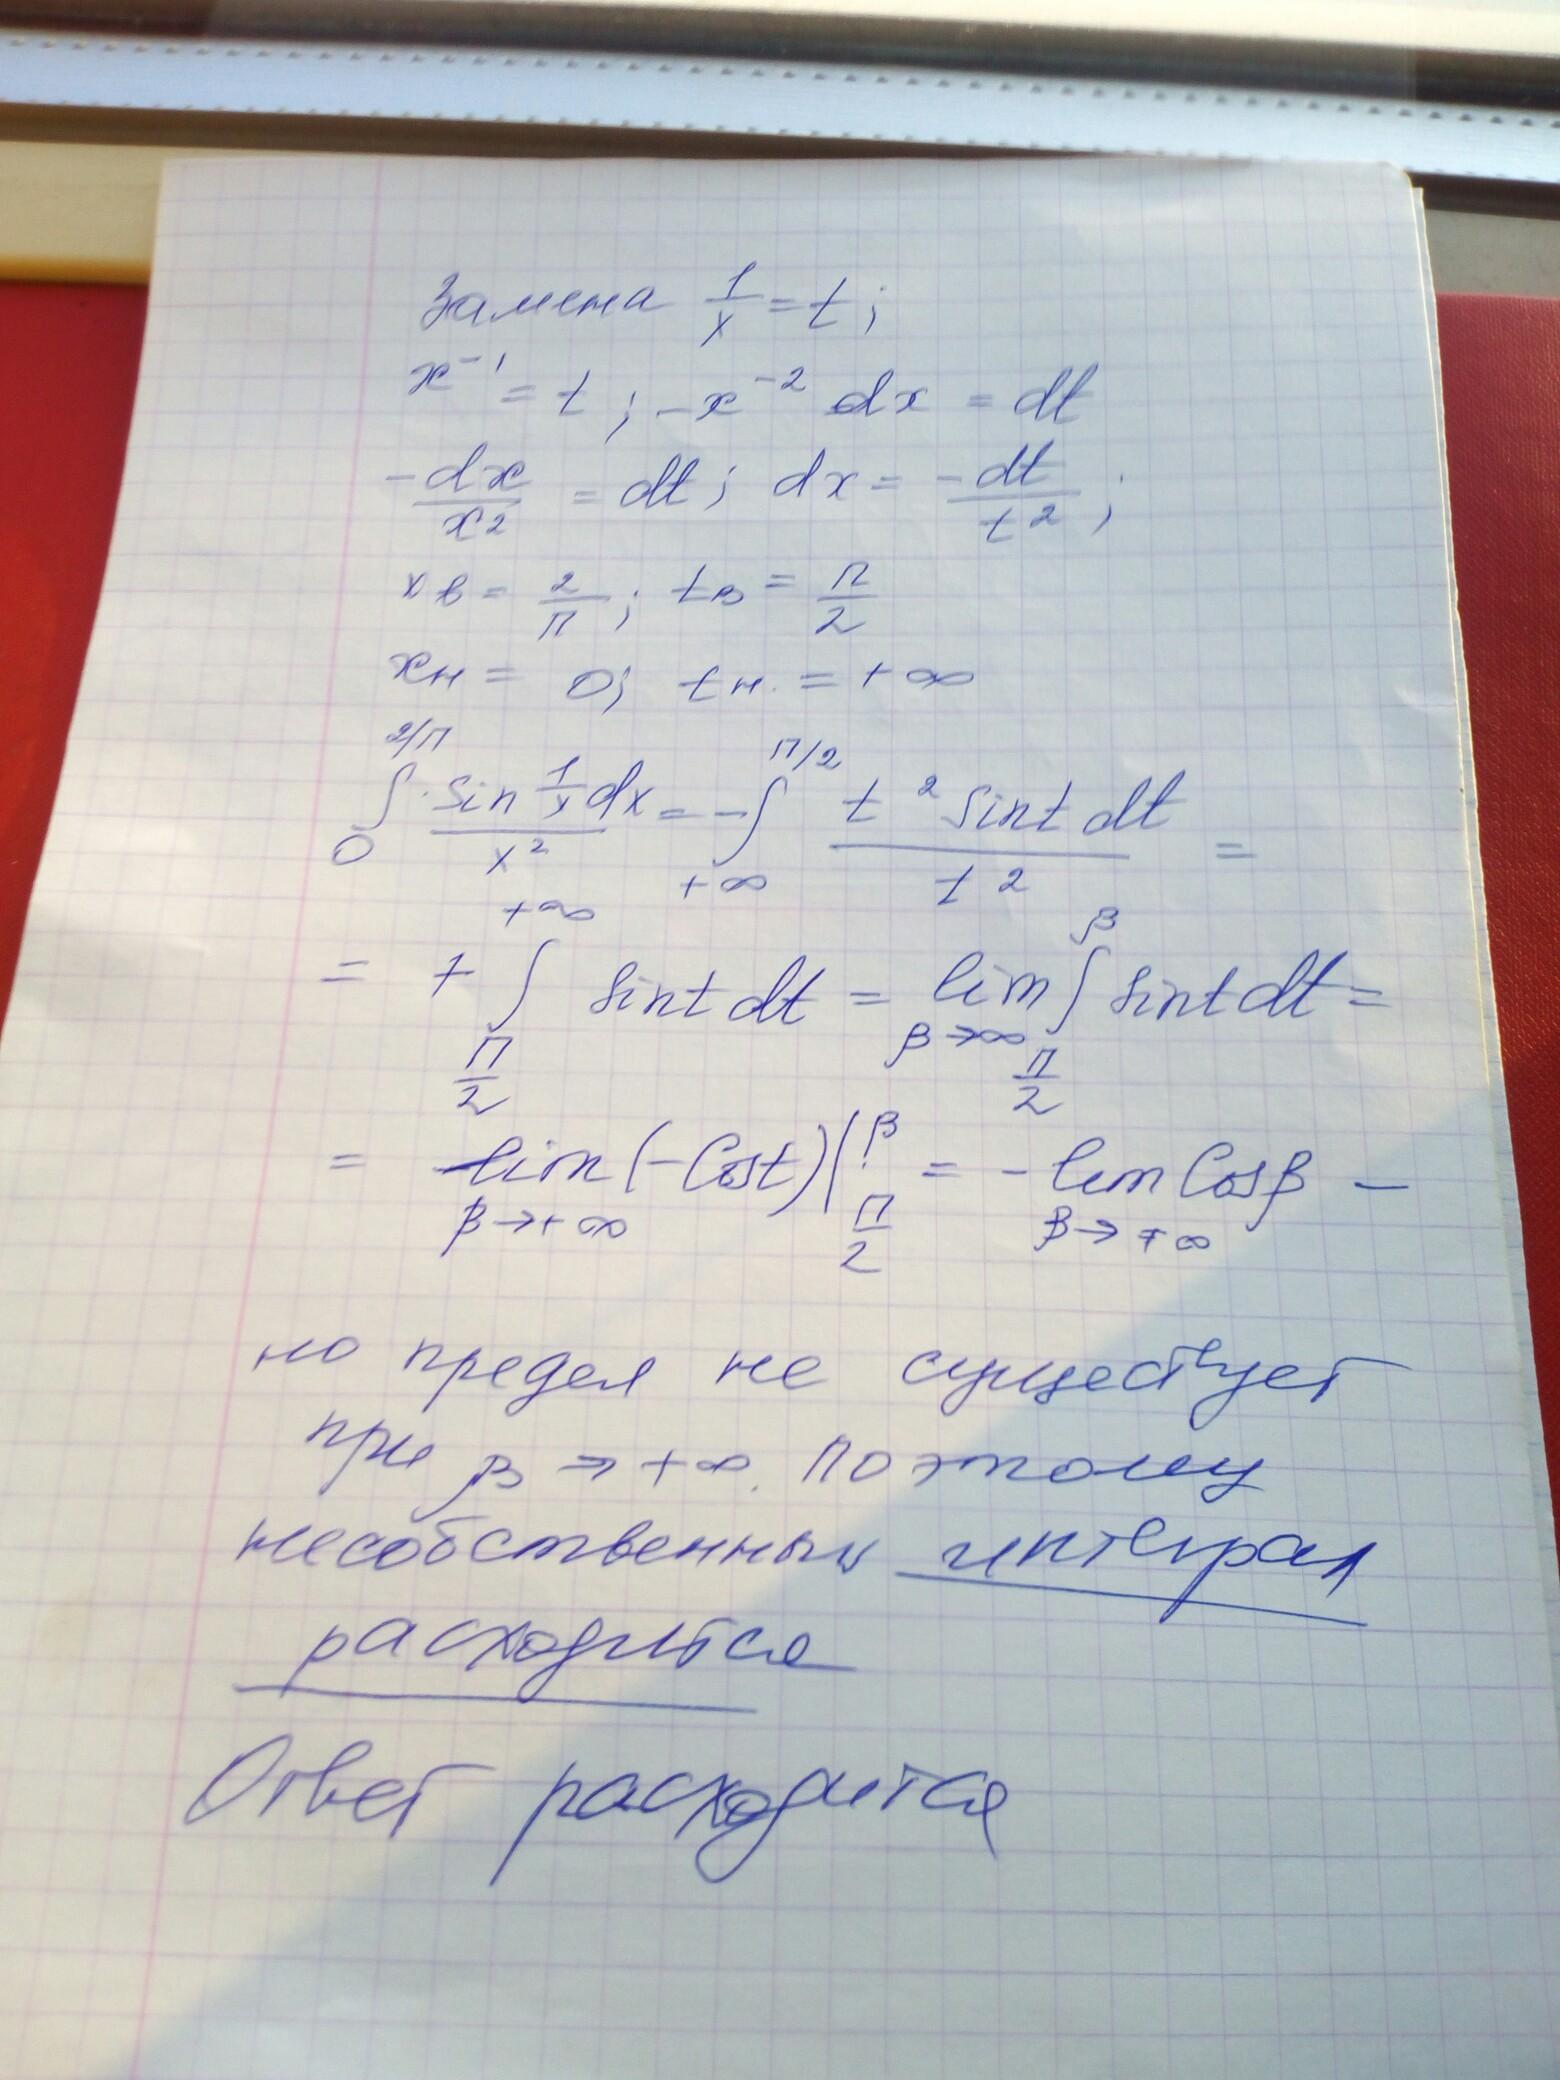 Замена 1/x = t;
x⁻¹ = t; -x⁻² dx = dt
-dx/x² = dt; dx = -dt/t²;
xв = 2/π; tв = π/2
xн = 0; tн. = +∞
∫₀^{2/π} sin 1/x dx / x² = -∫_{+∞}^{π/2} t² sint dt / t² =
= + ∫_{π/2}^{+∞} sint dt = lim_{β→∞} ∫_{π/2}^{β} sint dt =
= lim_{β→+∞} (-Cost)|_{π/2}^{β} = - lim_{β→+∞} Cosβ -
но предел не существует
при β → +∞. Поэтому
несобственный интеграл
расходится
Ответ расходится